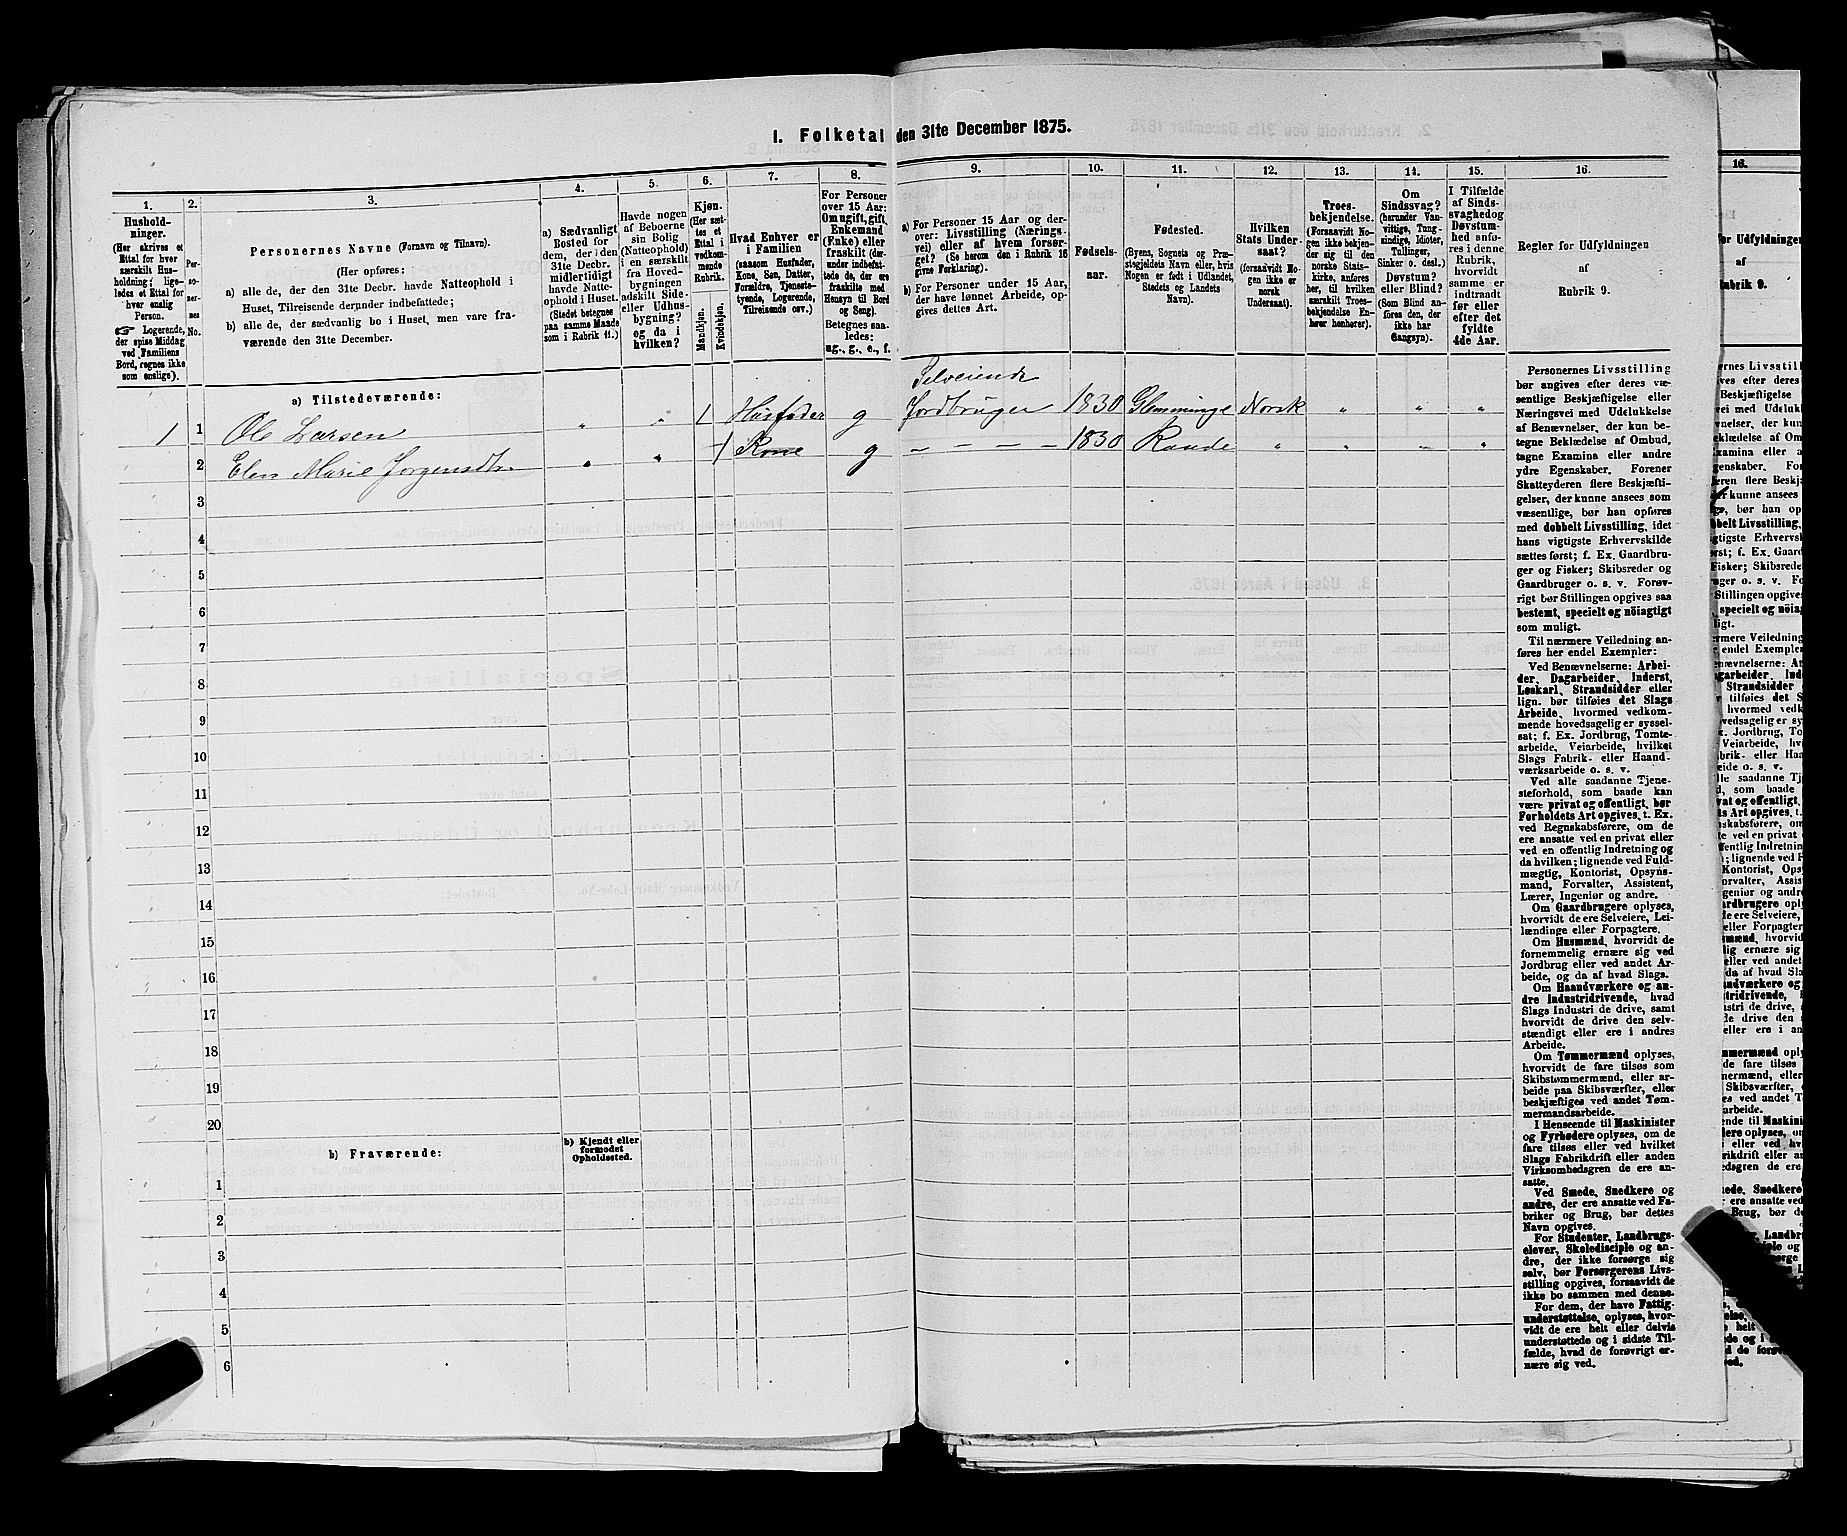 I. Folketal den 31te December 1875.
1.
2.
3.
4.
5.
6.
7.
8.
9.
10.
11.
12.
13.
14.
15.
16.
Hushold-
ninger.
(Her skrives et
Ettal for hver
særskilt Hus-
holdning; lige-
ledes et Ettal for
hver enslig
Person.
☞ Logerende,
der spise Middag
ved Familiens
Bord, regnes ikke
som enslige).
Personernes Navne (Fornavn og Tilnavn).
(Her opføres:
a) alle de, der den 31te Decbr. havde Natteophold i
Huset, Tilreisende derunder indbefattede;
b) alle de, der sædvanlig bo i Huset, men vare fra-
værende den 31te December.
a) Sædvanligt
Bosted for
dem, der i den
31te Decbr.
midlertidigt
havde Natte-
ophold i Huset.
(Stedet betegnes
paa samme Maade
som i Rubrik 11.)
Havde nogen
af Beboerne
sin Bolig
(Natteophold)
i en særskilt
fra Hoved-
bygningen
adskilt Side-
eller Udhus-
bygning?
og da i
hvilken?
Kjøn.
(Her sæt-
tes et
Ettal i
vedkom-
mende
Rubrik.
Mandkjøn.
Kvindekjøn.
Hvad Enhver er
i Familien
(saasom Husfader,
Kone, Søn, Datter,
Forældre, Tjeneste-
tyende, Logerende,
Tilreisende osv.)
For Personer
over 15 Aar:
Om ugift, gift,
Enkemand
(Enke) eller
fraskilt (der-
under indbefat-
tede de, der ere
fraskilte med
Hensyn til Bord
og Seng).
Betegnes saa-
ledes:
ug., g., e., f.
a) For Personer 15 Aar og der-
over: Livsstilling (Nærings-
vei) eller af hvem forsør-
get? (Se herom den i Rubrik 16
givne Forklaring).
b) For Personer under 15 Aar,
der have lønnet Arbeide, op-
gives dettes Art.
Fødsels-
aar.
Fødested.
(Byens, Sognets og Præ-
stegjeldets Navn eller, hvis
Nogen er født i Udlandet,
Stedets og Landets
Navn).
Hvilken
Stats Under-
saat?
(forsaavidt No-
gen ikke er
norsk
Undersaat).
Troes-
bekjendelse.
(Forsaavidt No-
gen ikke bekjen-
der sig til den
norske Stats-
kirke, anføres
her, til hvilken
særskilt Troes-
bekjendelse En-
hver henhører).
Om
Sindssvag?
(herunder Van-
vittige, Tung-
sindige, Idioter,
Tullinger,
Sinker o. desl.)
Døvstum?
eller Blind?
(Som Blind an-
føres den, der
ikke har
Gangsyn).
I Tilfælde
af Sinds-
svaghed og
Døvstum-
hed anfø-
res i denne
Rubrik,
hvorvidt
samme er
indtraadt
før eller
efter det
fyldte
4de Aar.
Regler for Udfyldningen
af
Rubrik 9.
a) Tilstedeværende:
1 1 Ole Larsen " " 1 Husfader g Selveiende Jordbruger 1830 Glemminge Norsk " " "
2 Elen Marie Jørgensdtr. " " 1 Kone g – – – – 1830 Raade " " " "
3
4
5
6
7
8
9
10
11
12
13
14
15
16
17
18
19
20
b) Fraværende:
b) Kjendt eller
formodet
Opholdssted.
1
2
3
4
5
6
Personernes Livsstilling
bør angives efter deres væ-
sentlige Beskjæftigelse eller
Næringsvei med Udelukkelse
af Benævnelser, der kun be-
tegne Beklædelse af Ombud,
tagne Examina eller andre
ydre Egenskaber. Forener
Skatteyderen flere Beskjæfti-
gelser, der kunne ansees som
væsentlige, bør han opføres
med dobbelt Livsstilling, idet
hans vigtigste Erhvervskilde
sættes først; f. Ex. Gaardbru-
ger og Fisker; Skibsreder og
Gaardbruger o. s. v. Forøv-
rigt bør Stillingen opgives saa
bestemt, specielt og nöiagtigt
som muligt.
Til nærmere Veiledning an-
føres her endel Exempler:
Ved Benævnelserne: Arbei-
der, Dagarbeider, Inderst,
Løskarl, Strandsidder eller
lign. bør tilføies det Slags
Arbeide, hvormed vedkom-
mende hovedsagelig er syssel-
sat; f. Ex. Jordbrug, Tomte-
arbeide, Veiarbeide, hvilket
Slags Fabrik- eller Haand-
værksarbeide o. s. v.
Ved alle saadanne Tjene-
steforhold, som baade kan
være privat og offentligt, bør
Forholdets Art opgives, t. Ex.
ved Regnskabsførere, om de
ere ansatte ved en privat eller
ved en offentlig Indretning og
da hvilken; lignende ved Fuld-
mægtig, Kontorist, Opsyns-
mand, Forvalter, Assistent,
Lærer, Ingeniør og andre.
Om Gaardbrugere oplyses,
hvorvidt de ere Selveiere, Lei-
lændinge eller Forpagtere.
Om Husmænd, hvorvidt de
fornemmelig ernære sig ved
Jordbrug eller ved andet Ar-
beide, og da af hvad Slags.
Om Haandværkere og an-
dre Industridrivende, hvad
Slags Industri de drive, samt
hvorvidt de drive den selv-
stændigt eller ere i andres
Arbeide.
Om Tømmermænd oplyses,
hvorvidt de fare tilsøs som
Skibstømmermænd, eller ar-
beide paa Skibsværfter, eller
beskjæftiges ved andet Tøm-
mermandsarbeide.
I Henseende til Maskinister
og Fyrbødere oplyses, om de
fare tilsøs eller ved hvilket
Slags Fabrikdrift eller anden
Virksomhedsgren de ere an-
satte.
Ved Smede, Snedkere og
andre, der ere ansatte ved Fa-
briker og Brug, bør dettes
Navn opgives.
For Studenter, Landbrugs-
elever, Skoledisciple og an-
dre, der ikke forsørge sig
selv, bør Forsørgerens Livs-
stilling opgives, forsaavidt de
ikke bo sammen med denne.
For dem, der have Fattig-
understøttelse, oplyses, hvor-
vidt de ere helt eller delvis
understøttede og i sidste Til-
fælde, hvad de forøvrigt er-
nære sig ved.